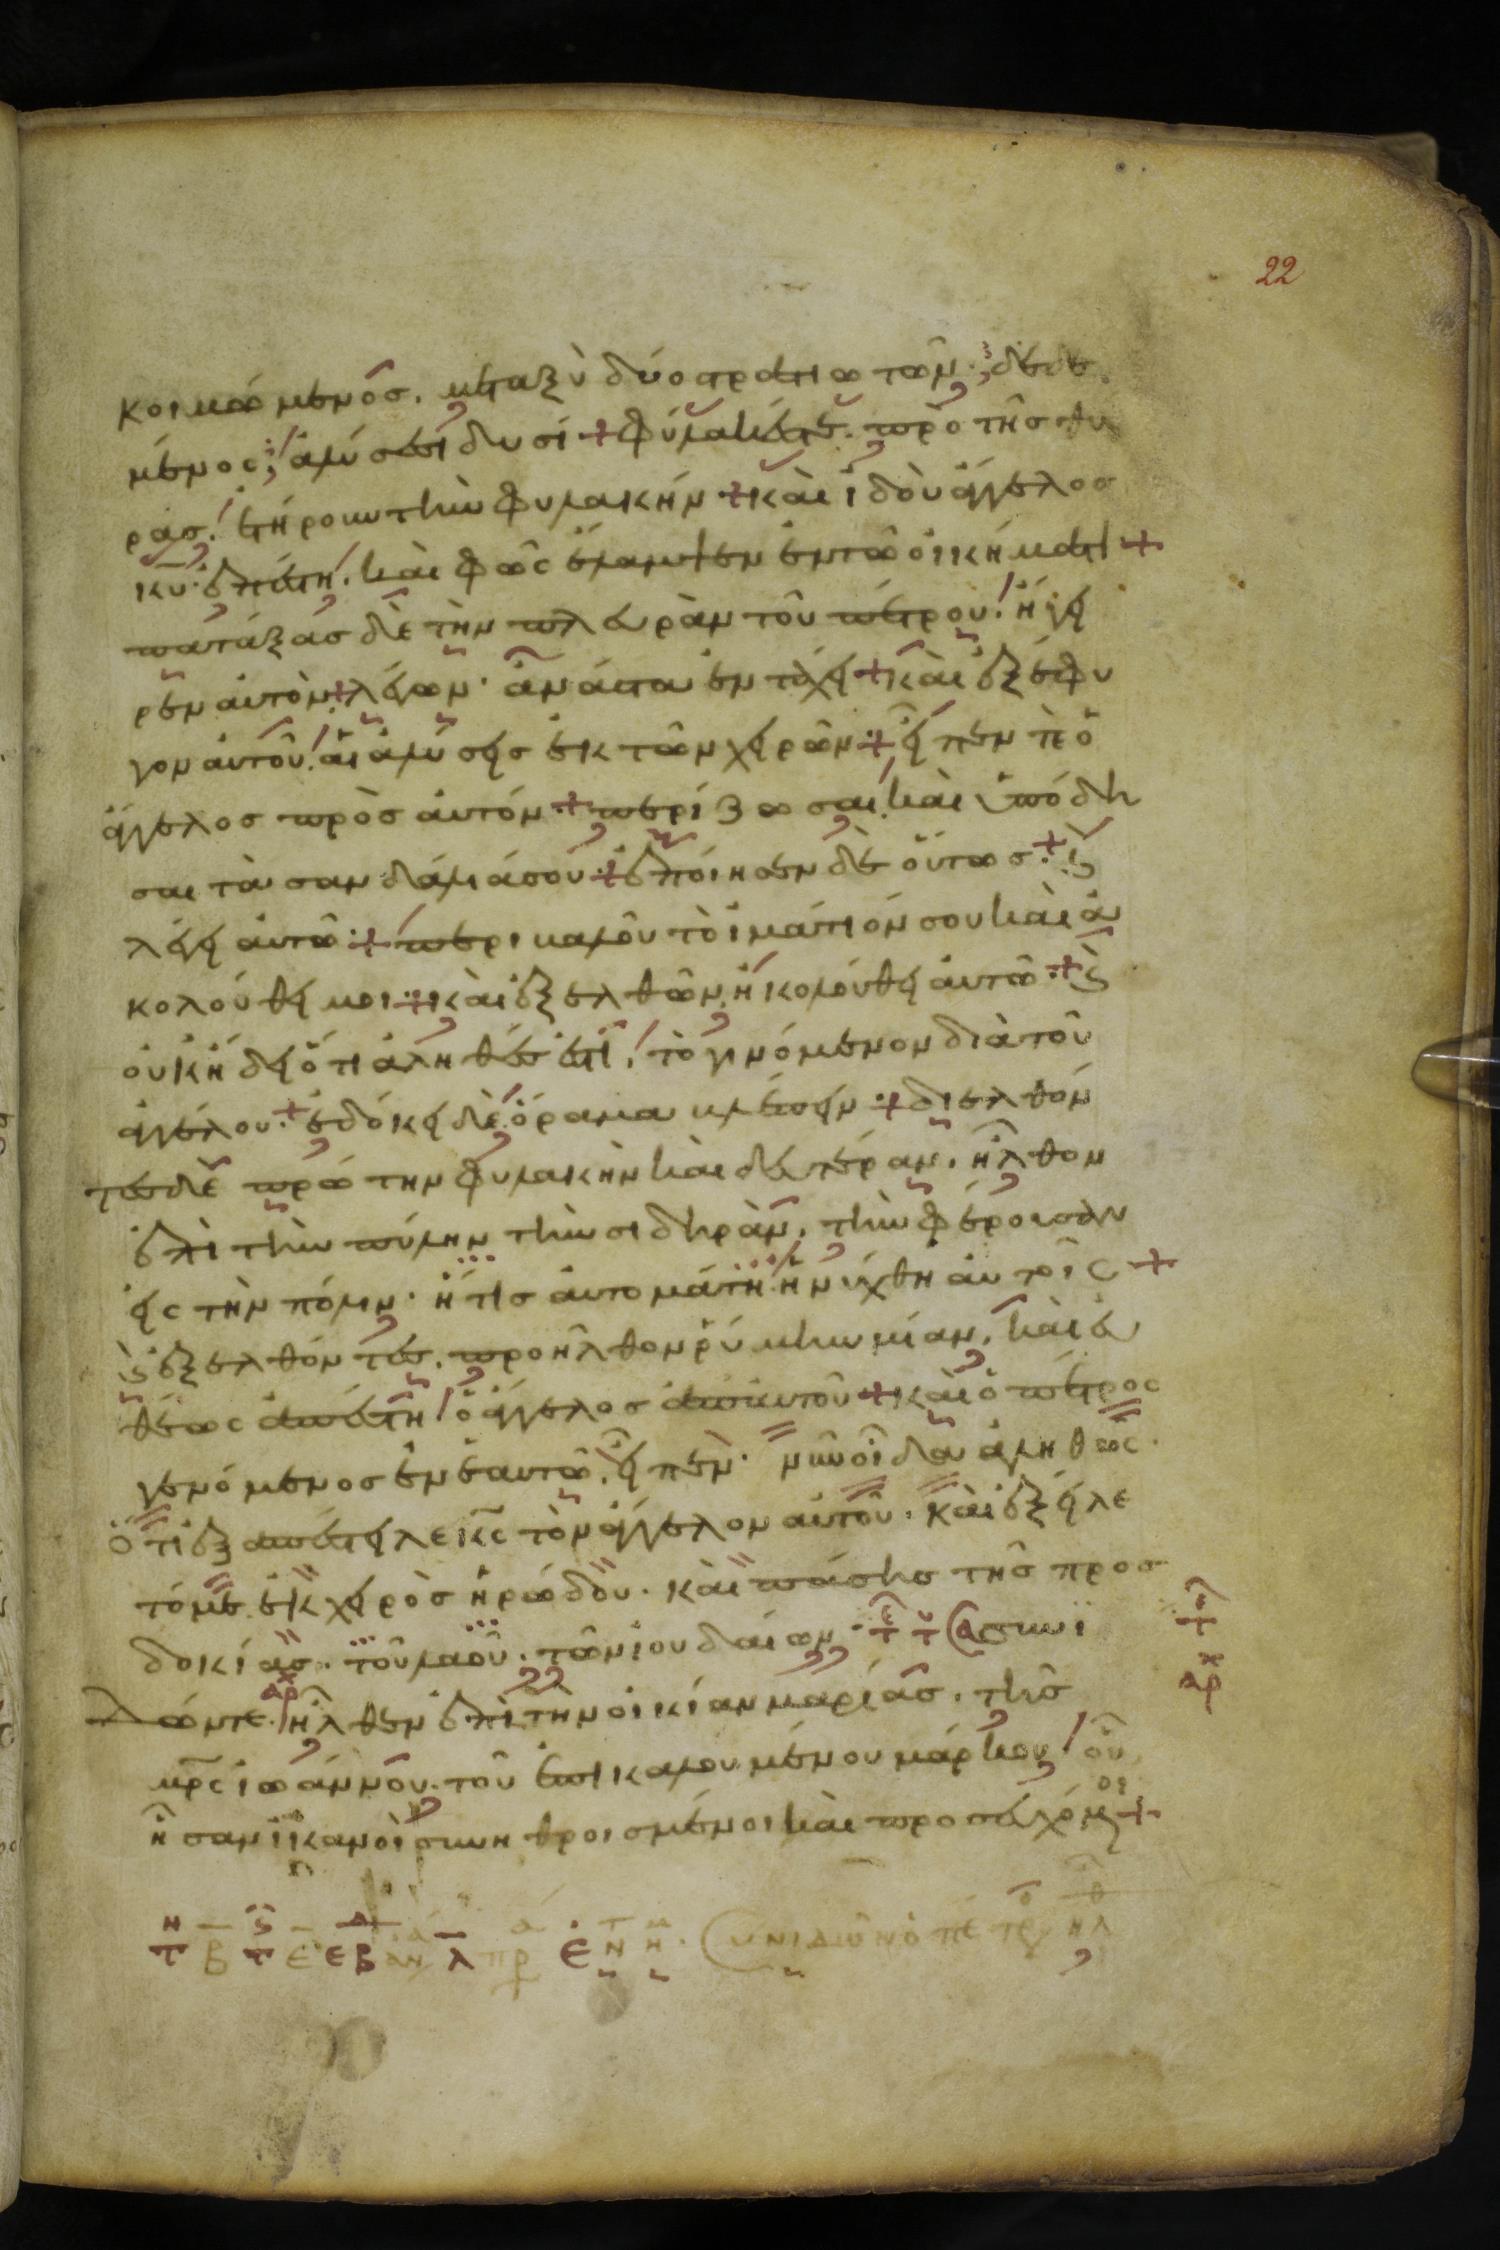 22
κοιμώμενος. μεταξὺ δύο στρατιωτῶν· δεδε
μένος, ἁλύσεσι δυσὶ + φύλακές τε. πρὸ τῆς θυ
ρας. ἐτήρουν τὴν φυλακήν + καὶ ἰδοὺ ἄγγελος
κυ ἐπέστη. καὶ φῶς ἔλαμψεν ἐν τῶ οἰκήματι +
πατάξας δὲ τὴν πλευρὰν τοῦ πέτρου. ἤγει
ρεν αυτὸν + λέγων· ἀνάστα ἐν τάχει + καὶ ἐξέπε
σον αυτοῦ. αἱ ἁλύσεις ἐκ τῶν χειρῶν + εἶπεν τὲ ὁ
ἄγγελος πρὸς αυτόν + περίζωσαι. καὶ ὑπόδη
σαι τὰ σανδάλιά σου + ἐποίησεν δὲ οὕτως + ϗ
λέγει αυτῶ + περιβαλοῦ τὸ ἱμάτιόν σου καὶ ἀ
κολούθει μοι + καὶ ἐξελθὼν ἠκολούθει αυτῶ + ϗ
ουκ ἤδει ὅτι ἀληθές ἐστι. τὸ γινόμενον διὰ τοῦ
ἀγγέλου + ἐδόκει δὲ ὅραμα βλέπειν + διελθόν
τες δὲ πρώτην φυλακὴν καὶ δευτέραν. ἦλθον
ἐπὶ τὴν πύλην τὴν σιδηρὰν. τὴν φέρουσαν
εις τὴν πόλιν· ἥτις αυτομάτη ἠνοίχθη αυτοῖς +
ϗ ἐξελθόντες. προῆλθον ῥύμην μίαν. καὶ ευ
θέως ἀπέστη ὁ ἄγγελος ἀπ' αυτοῦ + καὶ ὁ πέτρος
γενόμενος ἐν ἑαυτῶ. εἶπεν· νῦν οἶδα ἀληθῶς·
ὅτι ἐξαπέστειλε κς τὸν ἄγγελον αυτοῦ. καὶ ἐξείλε
τό με ἐκ χειρὸς ἡρώδου. καὶ πάσης τῆς προσ
δοκίας. τοῦ λαοῦ. τῶν ιουδαίων· συνϊ
δών τε. ἦλθεν ἐπὶ τὴν οἰκίαν μαρίας. τῆς
μρς ιωάννου. τοῦ ἐπικαλουμένου μάρκου οὗ
ἦσαν ἱκανοὶ συνηθροισμένοι καὶ προσευχόμενοι +